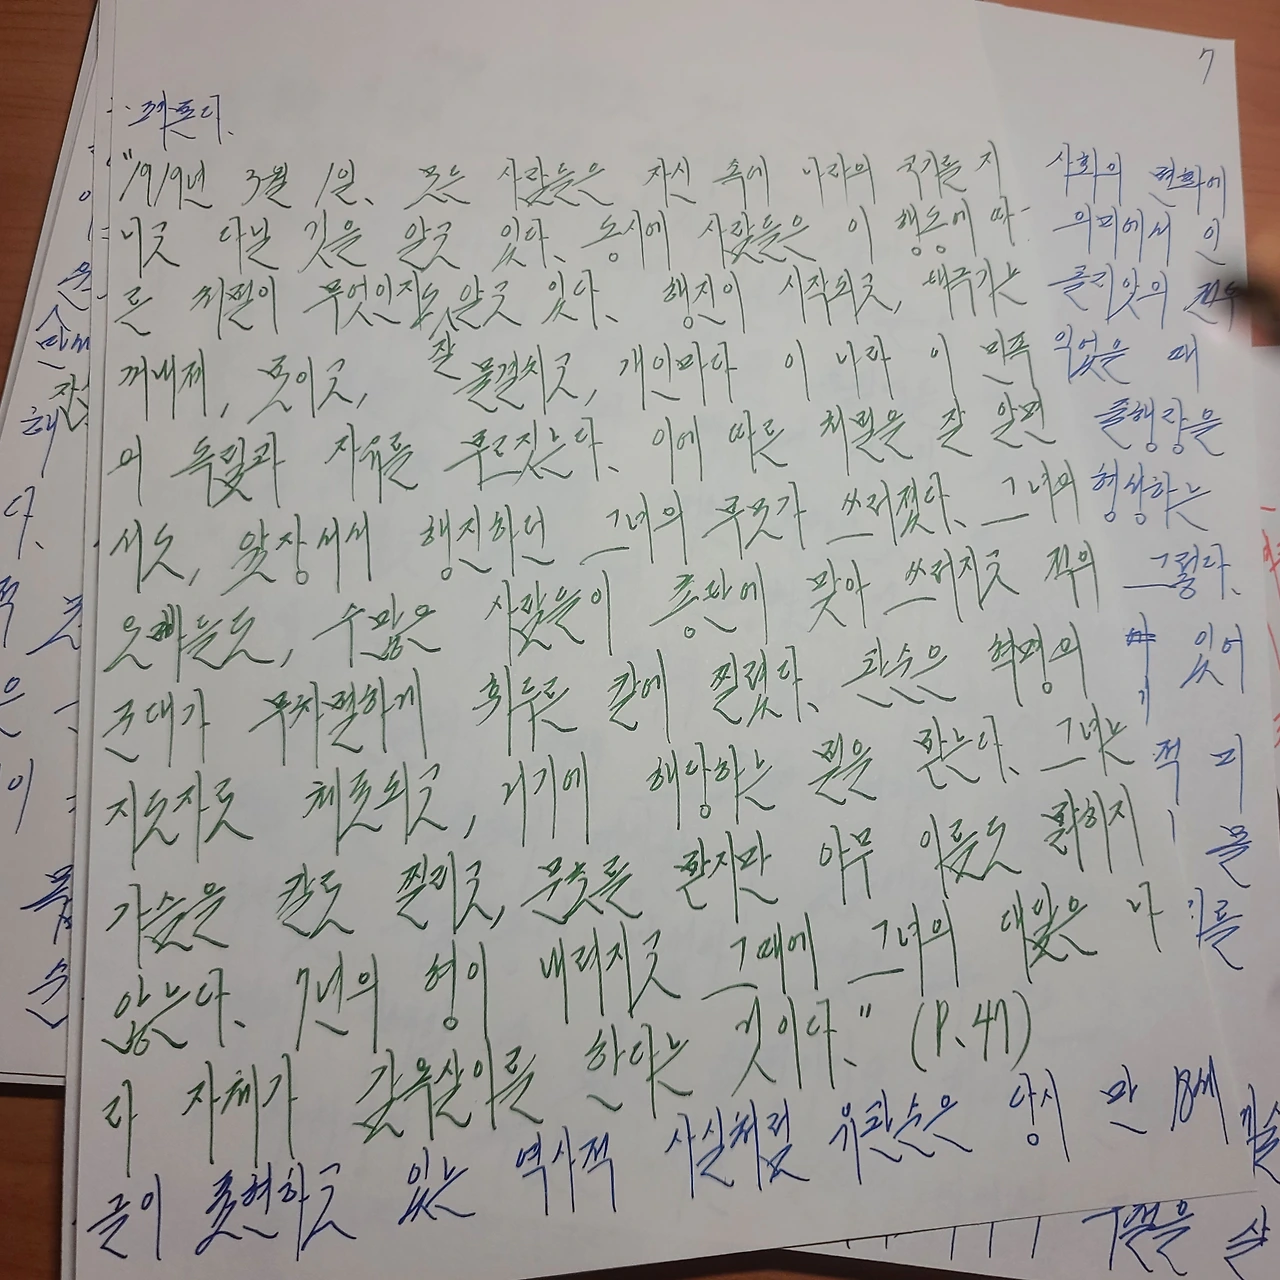 7
"1919년 3월 1일、 모든 사람들은 자신 속에 나라의 국기를 지
니고 다닐 것을 알고 있다、 동시에 사람들은 이 행동에 따
른 처벌이 무엇인지도 잘 알고 있다、 행진이 시작되고, 태극기는
꺼내져, 모이고, 물결치고, 개인마다 이 나라 이 민족
의 독립과 자유를 부르짖는다、 이에 따른 처벌을 잘 알면
서도, 앞장서서 행진하던 그녀의 부모가 쓰러졌다、 그녀의
오빠들도, 수많은 사람들이 총탄에 맞아 쓰러지고 적의
군대가 무차별하게 휘두른 칼에 찔렸다、 관순은 혁명의
지도자로 체포되고, 거기에 해당하는 벌을 받는다、 그녀는
가슴을 칼로 찔리고, 문초를 받지만 아무 이름도 밝히지
않는다、 7년의 형이 내려지고 그때에 그녀의 대답은 나
라 자체가 감옥살이를 한다는 것이다、" (P.47)
글이 표현하고 있는 역사적 사실처럼 유관순은 당시 만 18세
사회의 변화에
의미에서 인
골리앗의
있을 때
줄행랑을
형상하는
그렇다、
있어
적 미
물
기를